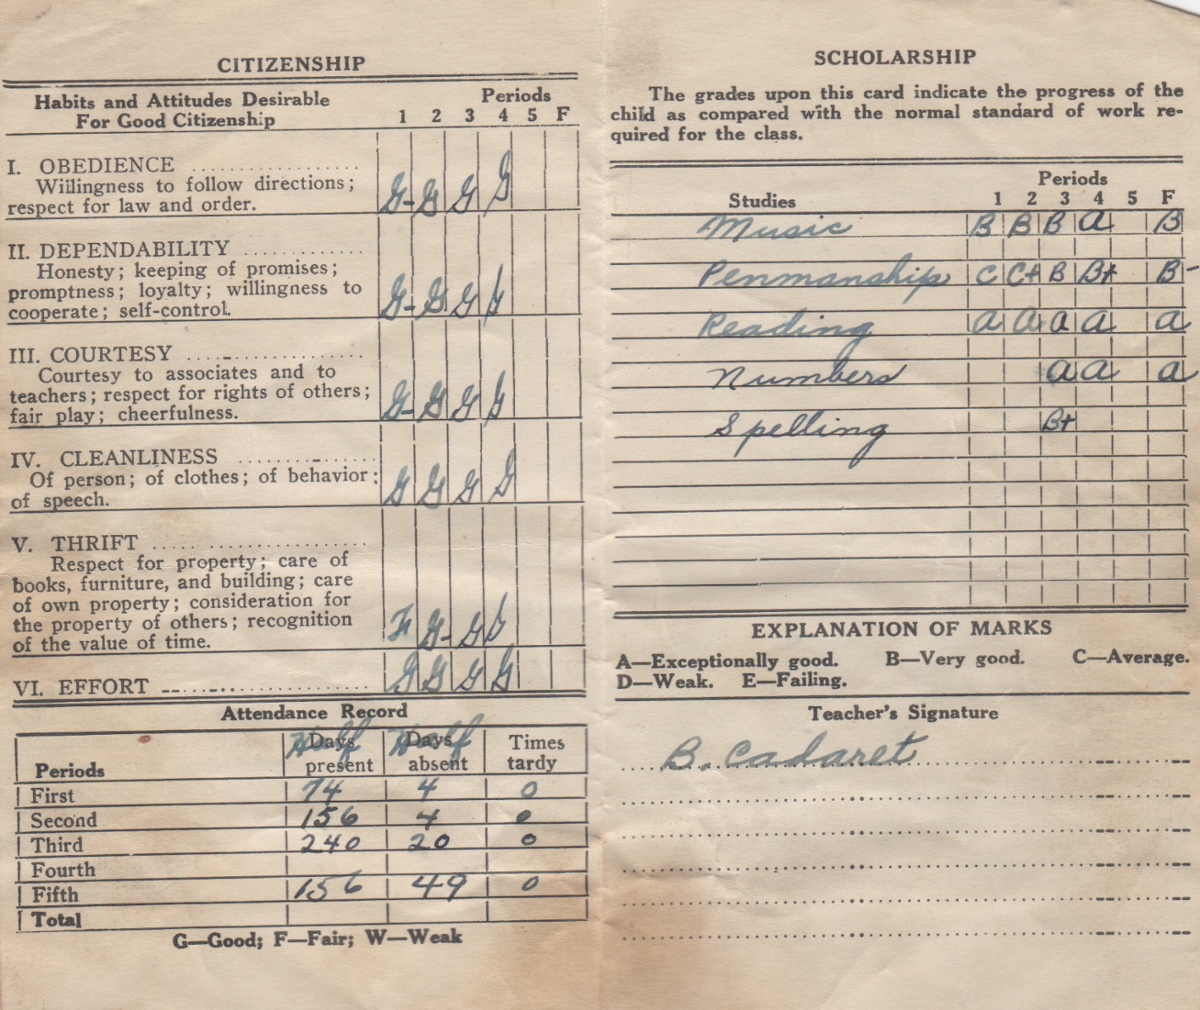 CITIZENSHIP
Habits and Attitudes Desirable
For Good Citizenship
Periods
1 2 3 4 5 F
I. OBEDIENCE ..................
Willingness to follow directions;
respect for law and order. G- G G G
II. DEPENDABILITY .............
Honesty; keeping of promises;
promptness; loyalty; willingness to
cooperate; self-control. G- G G G
III. COURTESY ..................
Courtesy to associates and to
teachers; respect for rights of others;
fair play; cheerfulness. G- G G G
IV. CLEANLINESS ..............
Of person; of clothes; of behavior;
of speech. G G G G
V. THRIFT ......................
Respect for property; care of
books, furniture, and building; care
of own property; consideration for
the property of others; recognition
of the value of time. F G- G G
VI. EFFORT .................... G G G G
Attendance Record
Periods Half Days present Half Days absent Times tardy
First 74 4 0
Second 156 4 0
Third 240 20 0
Fourth
Fifth 156 49 0
Total
G—Good; F—Fair; W—Weak
SCHOLARSHIP
The grades upon this card indicate the progress of the
child as compared with the normal standard of work re-
quired for the class.
Periods
Studies 1 2 3 4 5 F
Music B B B A B
Penmanship C C+ B B+ B-
Reading A A A A A
Numbers A A A
Spelling B+
EXPLANATION OF MARKS
A—Exceptionally good. B—Very good. C—Average.
D—Weak. E—Failing.
Teacher's Signature
B. Cadaret